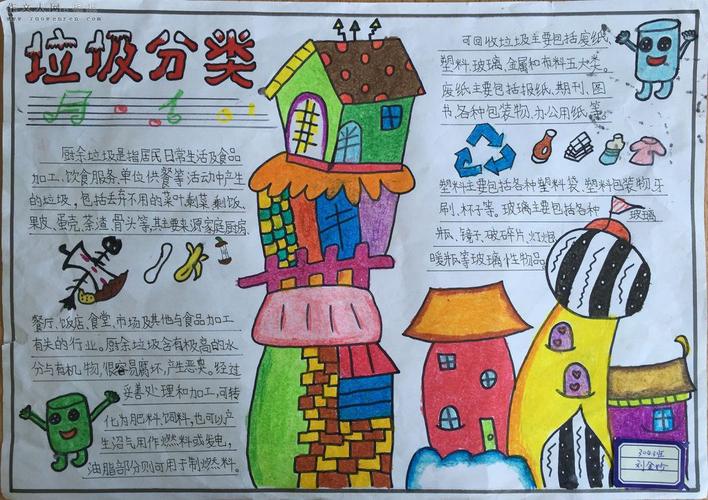 垃圾分类
厨余垃圾是指居民日常生活及食品
加工、饮食服务、单位供餐等活动中产生
的垃圾，包括丢弃不用的菜叶、剩菜、剩饭、
果皮、蛋壳、茶渣、骨头等，其主要来源家庭厨房、
餐厅、饭店、食堂、市场及其他与食品加工
有关的行业。厨余垃圾含有极高的水
分与有机物，很容易腐坏，产生恶臭。经过
妥善处理和加工，可转
化为肥料、饲料，也可以产
生沼气用作燃料或发电，
油脂部分则可用于制燃料。
可回收垃圾主要包括废纸、
塑料、玻璃、金属和布料五大类。
废纸主要包括报纸、期刊、图
书、各种包装物、办公用纸等。
塑料主要包括各种塑料袋、塑料包装物、牙
刷、杯子等。玻璃主要包括各种玻璃
瓶、镜子、破碎片、灯泡、
暖瓶等玻璃性物品。
304班